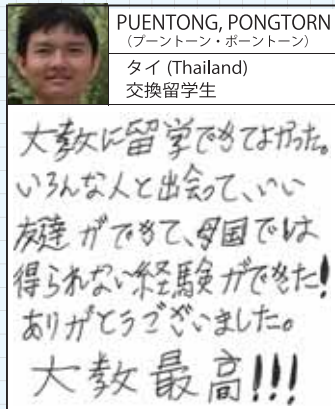 PUENTONG, PONGTORN
(プーントーン・ポーントーン)
タイ (Thailand)
交換留学生
大教に留学できてよかった。
いろんな人と出会って、いい
友達ができて、母国では
得られない経験ができた!
ありがとうございました。
大教最高!!!